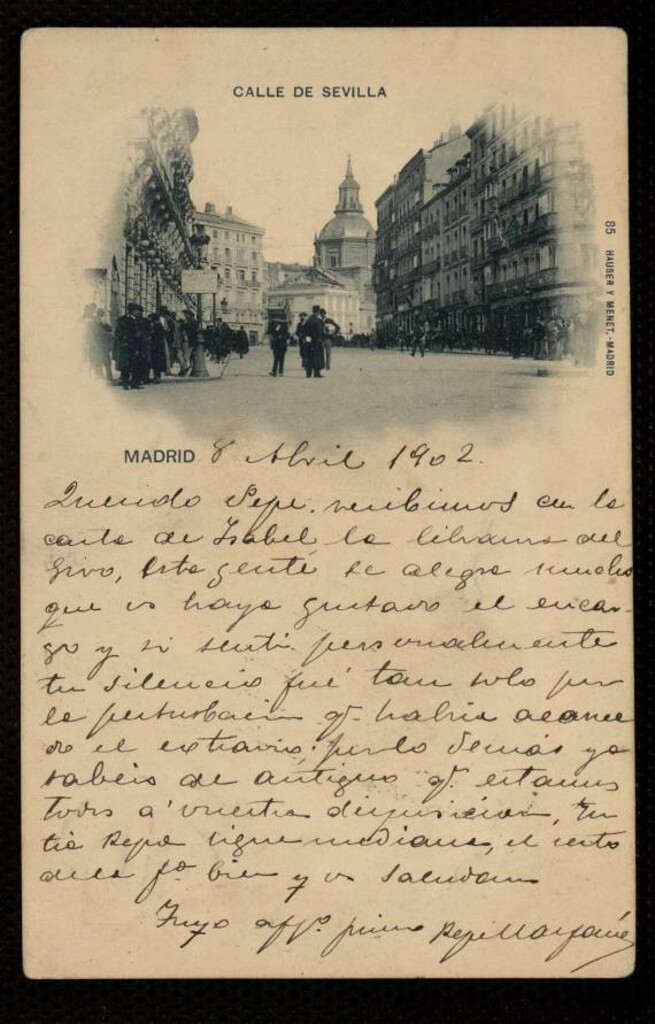 CALLE DE SEVILLA
85 HAUSER Y MENET.-MADRID
MADRID 8 Abril 1902.
Querido Pepe. recibimos en la
carta de Isabel la libranza del
Giro, Esta gente se alegra mucho
que os haya gustado el encar-
go y si sentí personalmente
tu silencio fué tan solo por
la perturbacion qe. habria acarrea
do el extravio; por lo demás ya
sabeis de antiguo qe. estamos
todos á vuestra disposicion, Tu
tia Pepa sigue mediana, el resto
de la fa. bien y os saludan
Tuyo affo. primo Pepe